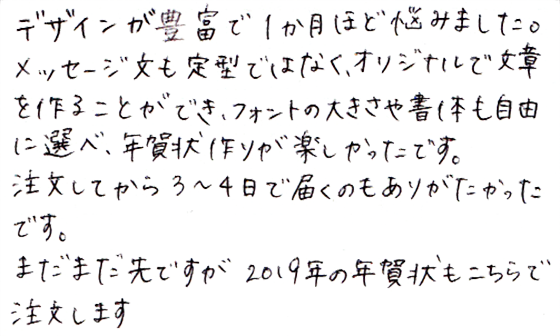 デザインが豊富で1か月ほど悩みました。
メッセージ文も定型ではなく、オリジナルで文章
を作ることができ、フォントの大きさや書体も自由
に選べ、年賀状作りが楽しかったです。
注文してから3〜4日で届くのもありがたかった
です。
まだまだ先ですが 2019年の年賀状もこちらで
注文します